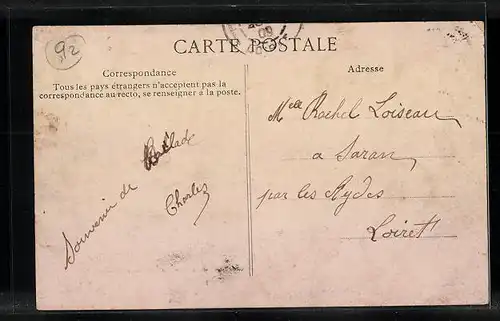 92
09
CARTE POSTALE
Correspondance
Tous les pays étrangers n'acceptent pas la
correspondance au recto, se renseigner à la poste.
Souvenir de
Charles
Adresse
Melle Rachel Loiseau
a Saran
par les Aydes
Loiret